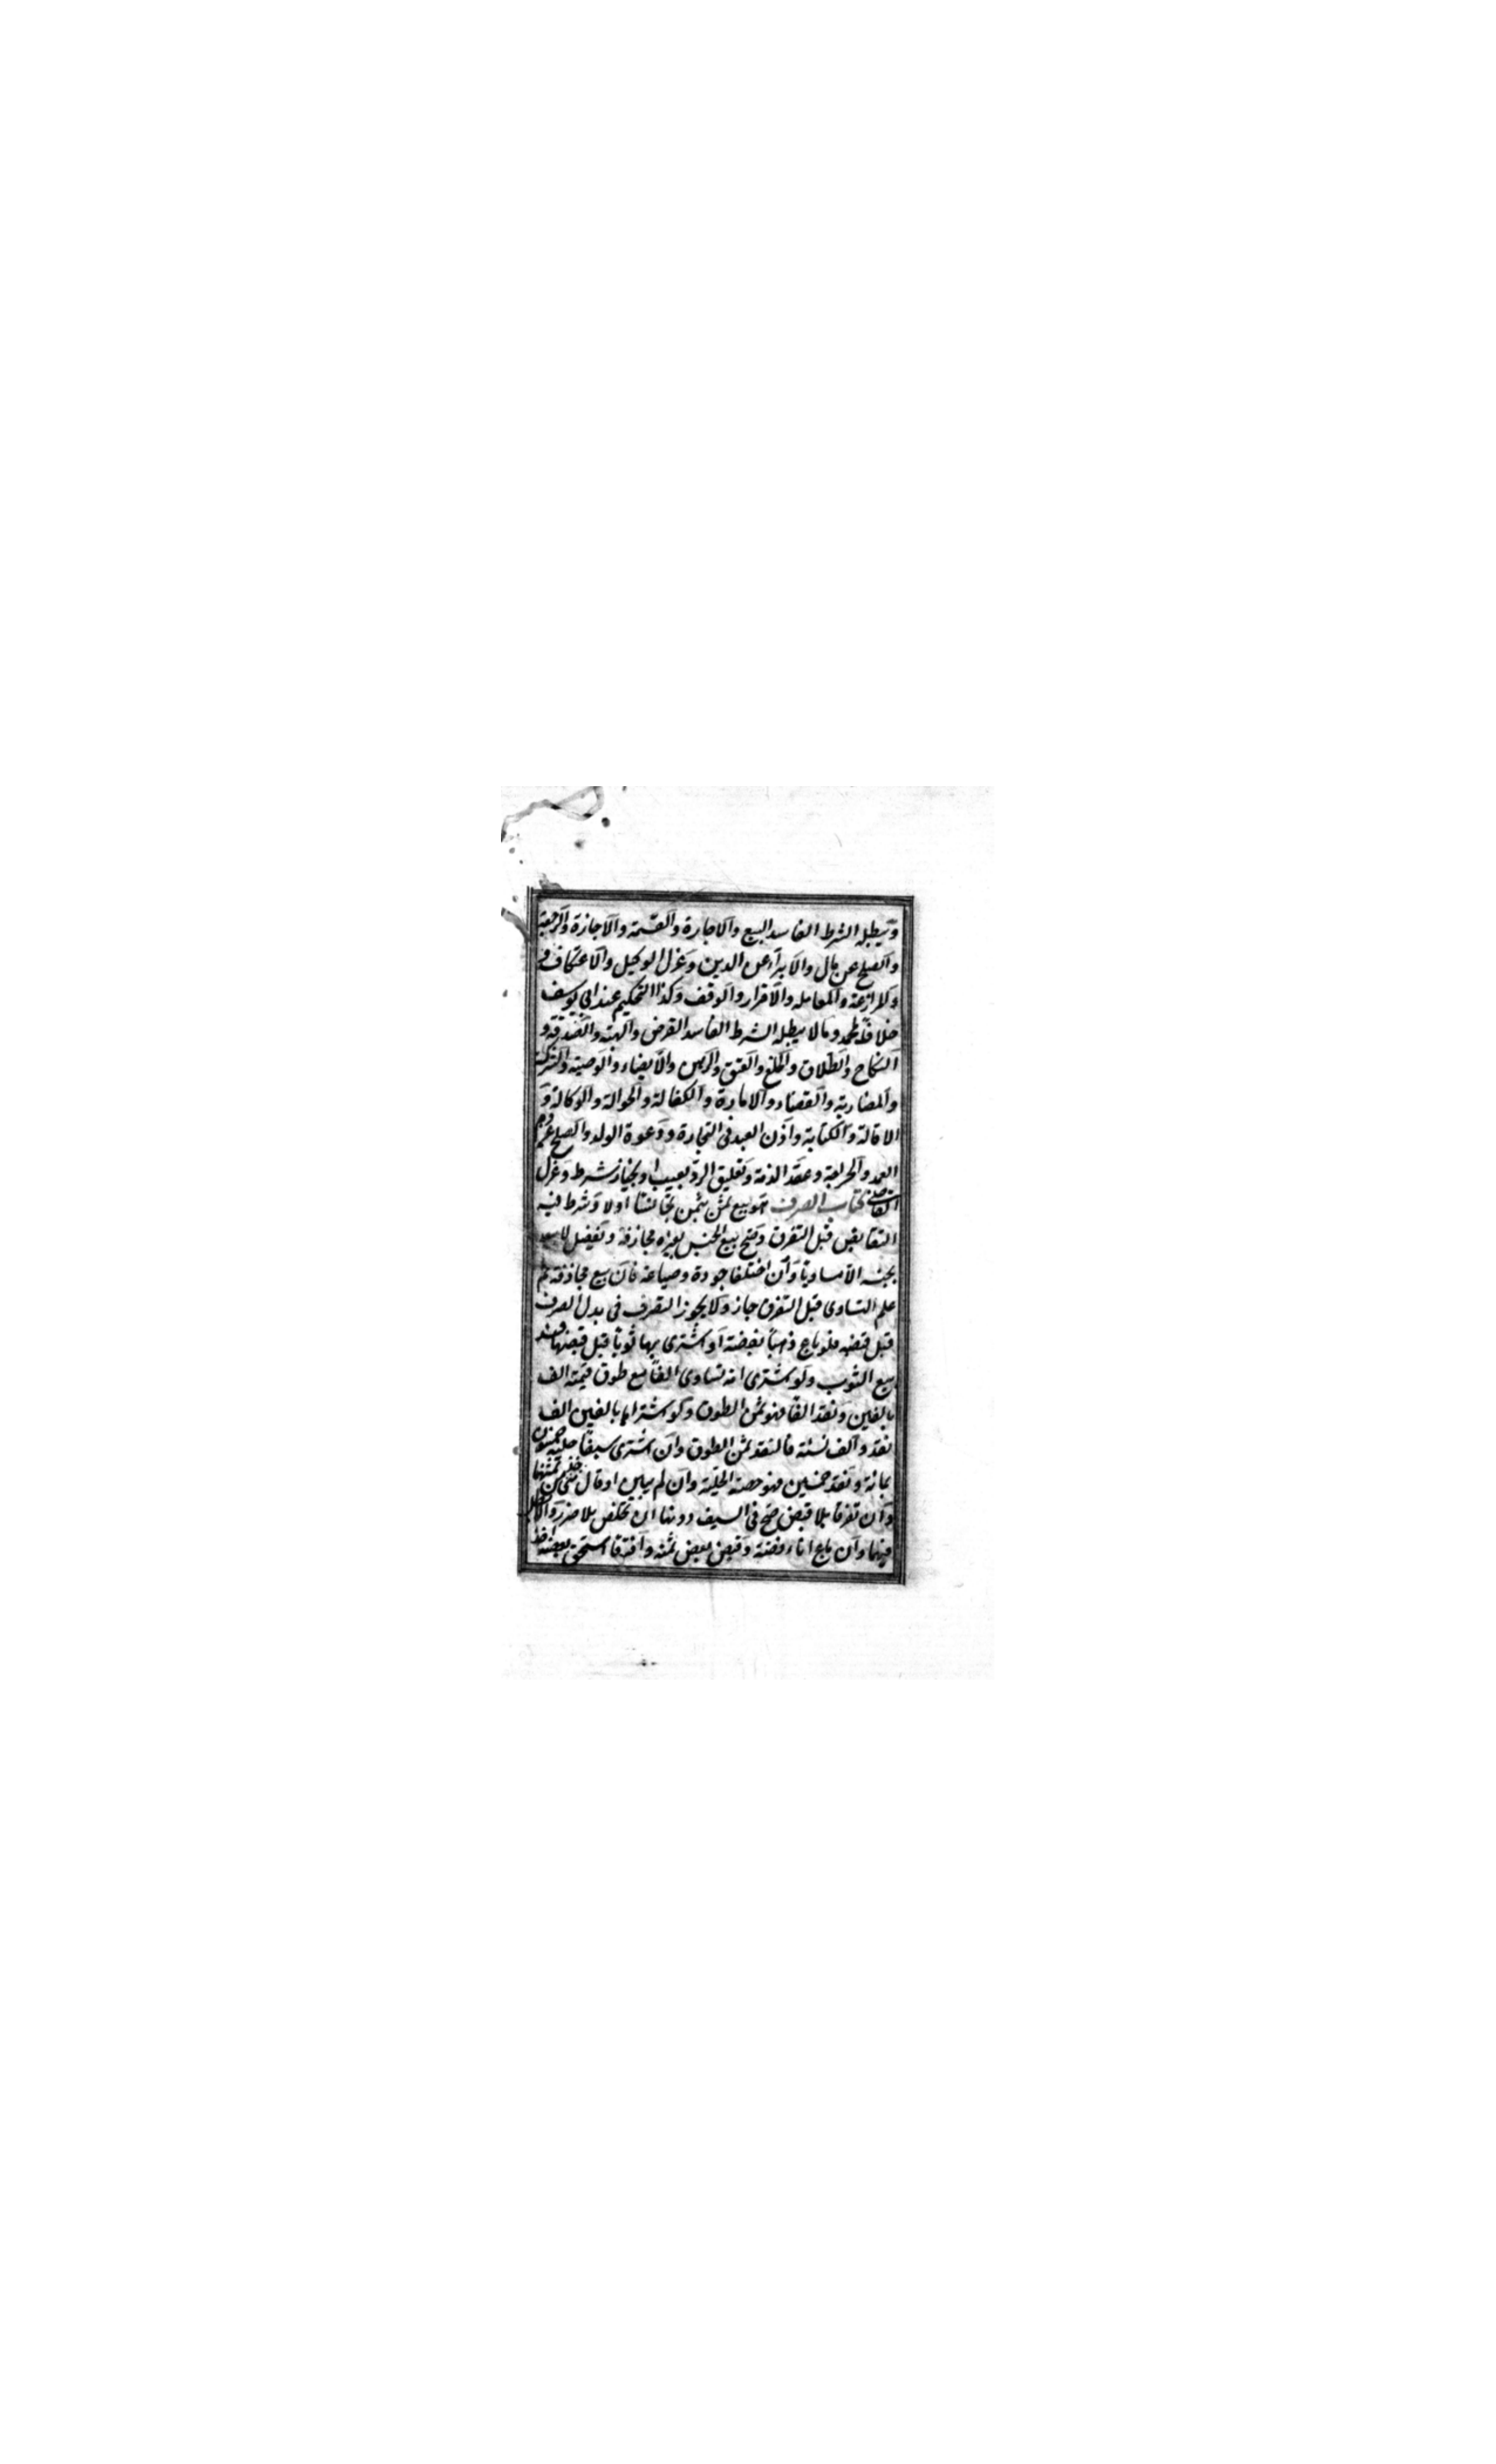 ويبطله الشرط الفاسد البيع والاجارة والقسمة والاجازة والرجعة
والصلح عن مال والابراء عن الدين وعزل الوكيل والاعتكاف
والمزارعة والمعاملة والاقرار والوقف وكذا التحكيم عند ابي يوسف
خلافا لمحمد ومالا يبطله الشرط الفاسد القرض والهبة والصدقة و
النكاح والطلاق والخلع والعتق والرهن والايصاء والوصية والشركة
والمضاربة والقضاء والامارة والكفالة والحوالة والوكالة و
الاقالة والكتابة واذن العبد في التجارة ودعوة الولد والصلح عن دم
العمد والجراحة وعقد الذمة وتعليق الرد بعيب او بخيار شرط وعزل
القاضي كتاب الصرف هو بيع ثمن بثمن تجانسا اولا وشرط فيه
التقابض قبل التفرق وصح بيع الجنس بغيره مجازفة وبفضل لا بيع
بجنسه الا مساويا وان اختلفا جودة وصياغة فان بيع مجازفة ثم
علم التساوى قبل التفرق جاز ولا يجوز التصرف فى بدل الصرف
قبل قبضه فلو باع ذهبا بفضة واشترى بها ثوبا قبل قبضها فسد
بيع الثوب ولو اشترى امة تساوى الفا مع طوق قيمته الف
بالفين ونقد الفا فهو ثمن الطوق ولو اشتراها بالفين الف
نقد والف نسئة فالنقد ثمن الطوق وان اشترى سيفا حليته خمسون
بمائة ونقد خمسين فهو حصة الحلية وان لم يبين او قال خذ من ثمنهما
وان تفرقا بلا قبض صح فى السيف دونها ان تخلص بلا ضرر والا بطل
فيهما وان باع اناء فضة وقبض بعض ثمنه وافترقا استحق بعضه اخذ